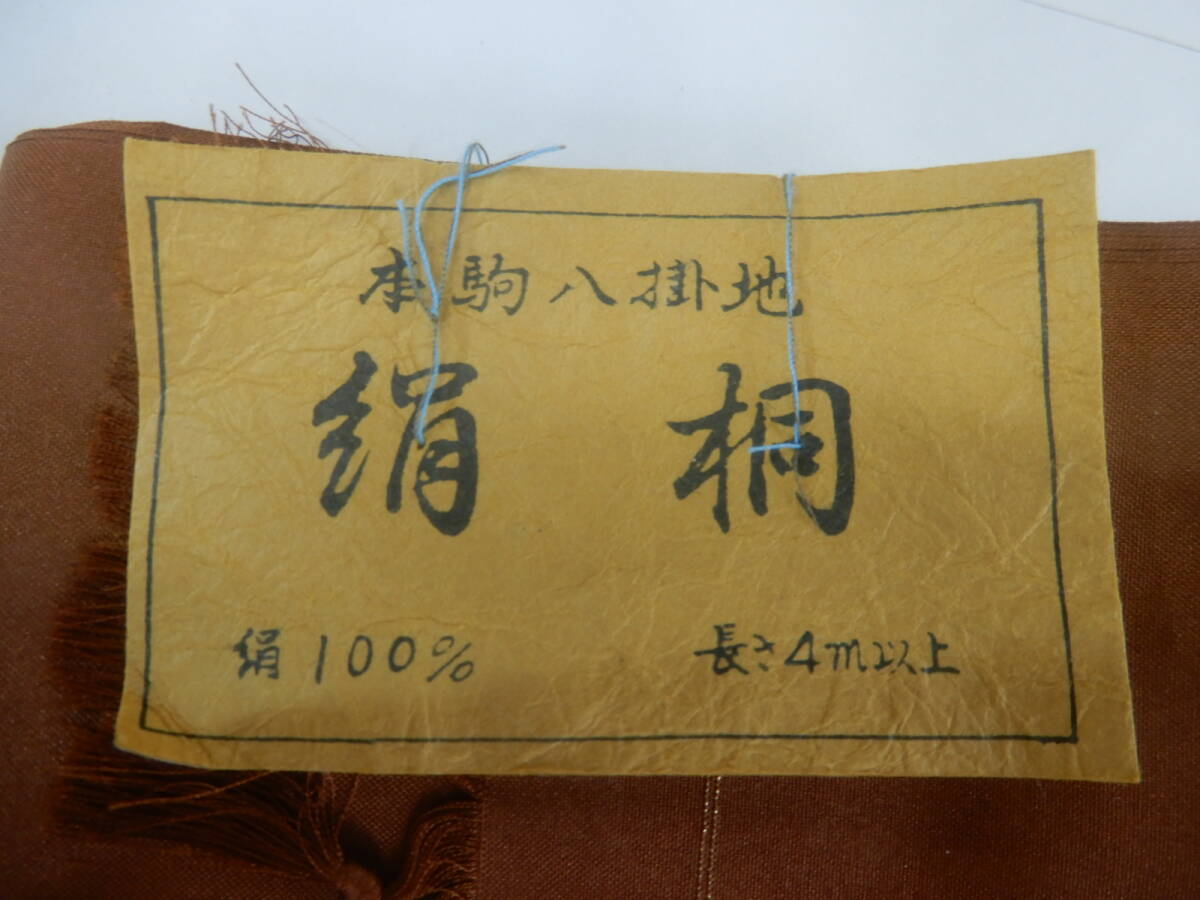 本駒八掛地
絹桐
絹100%
長さ4m以上